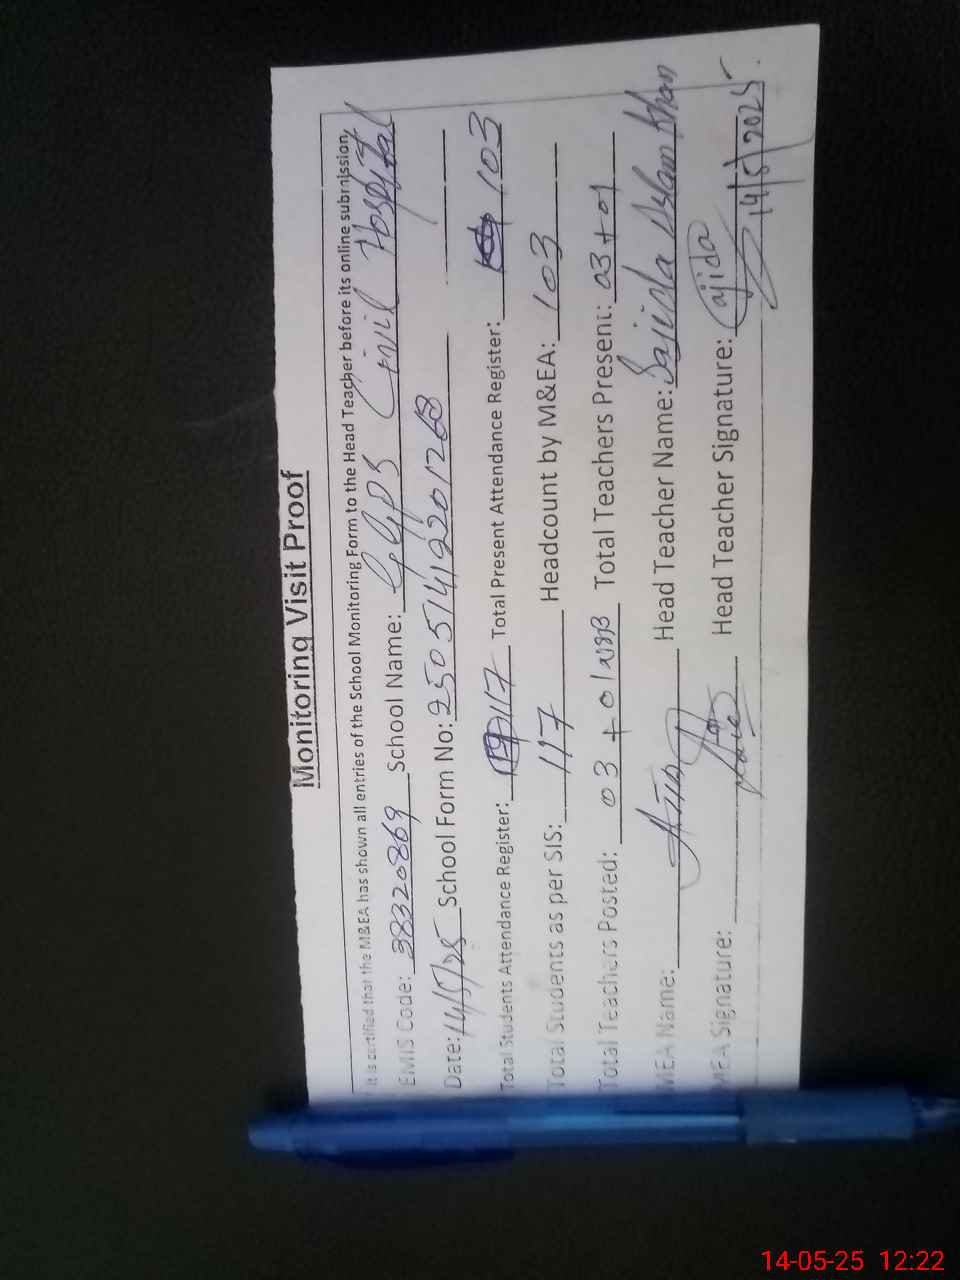 Monitoring Visit Proof
It is certified that the M&EA has shown all entries of the School Monitoring Form to the Head Teacher before its online submission.
EMIS Code: 38320869 School Name: GGPS Civil Hospital
Date: 14/5/25 School Form No: 25051412201268
Total Students Attendance Register: 117 Total Present Attendance Register: 103
Total Students as per SIS: 117 Headcount by M&EA: 103
Total Teachers Posted: 03 + 01 Total Teachers Present: 03 + 01
MEA Name: Head Teacher Name: Sajida Aslam Khan
MEA Signature: Head Teacher Signature: Sajida
14/5/2025
14-05-25 12:22